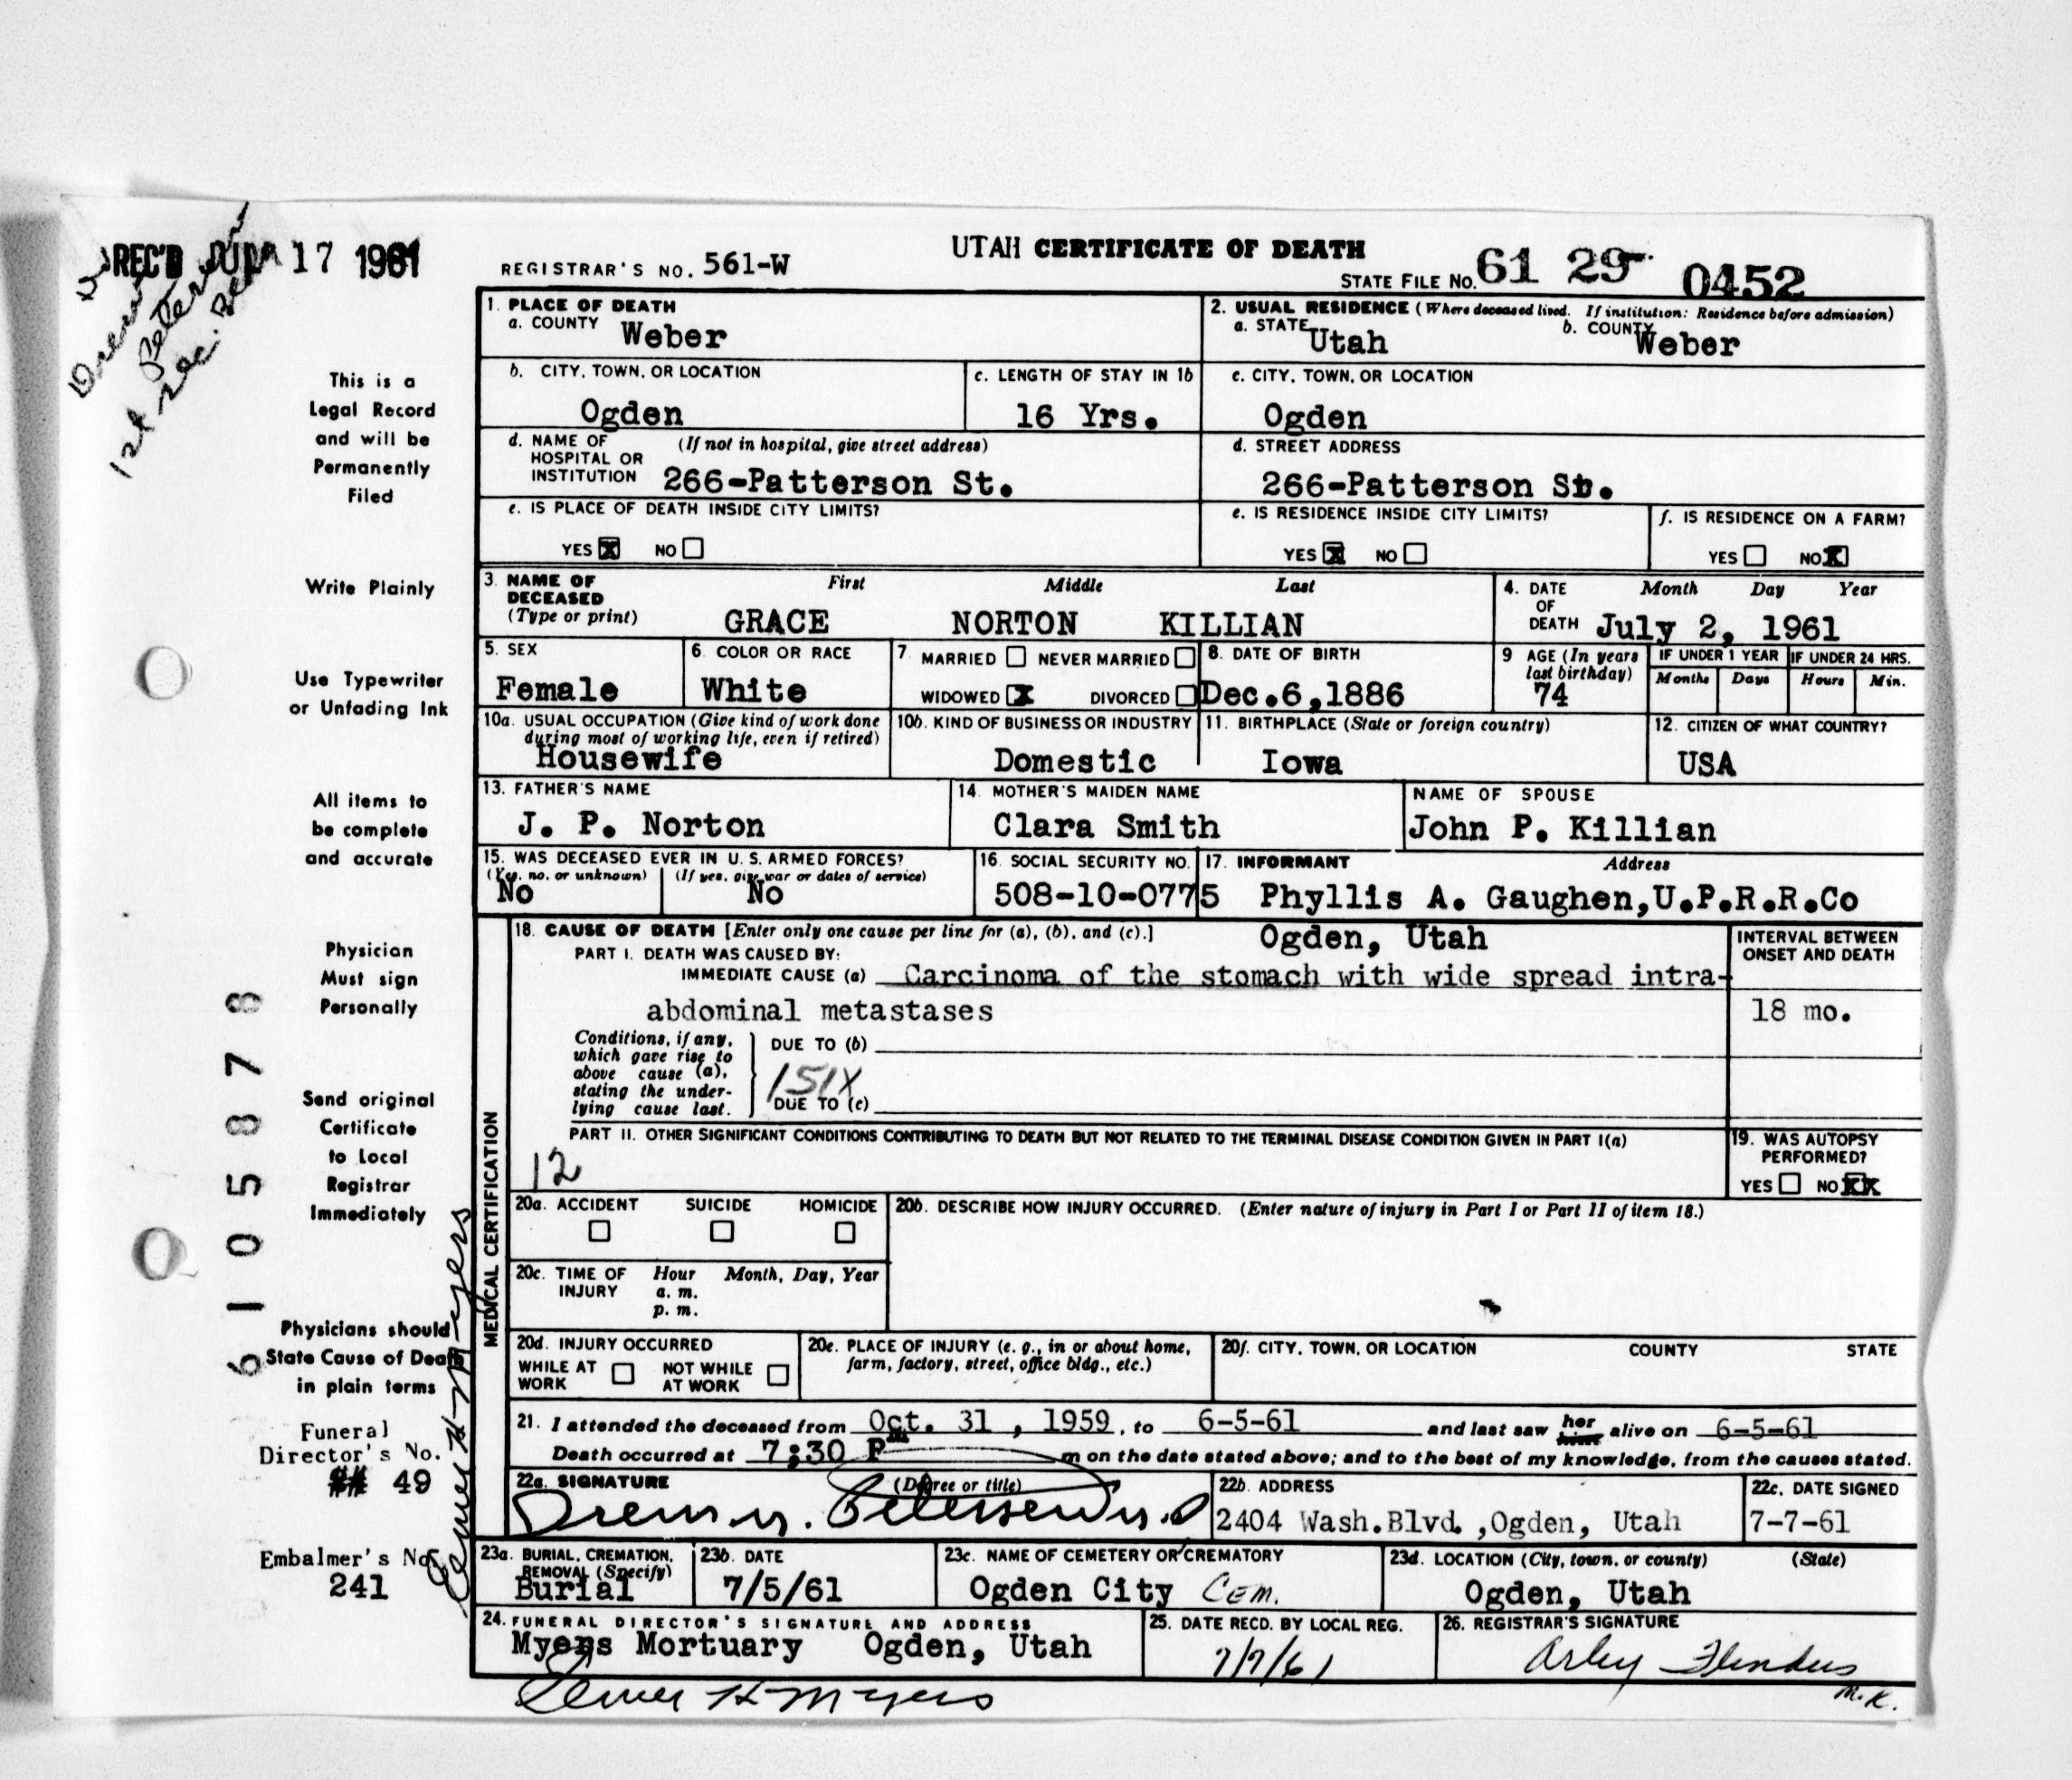 REC'D JUL 17 1961
UTAH CERTIFICATE OF DEATH
REGISTRAR'S NO. 561-W
STATE FILE NO. 61 29 0452
Drew
Petersen
1st Sec. Bk
1. PLACE OF DEATH
a. COUNTY Weber
2. USUAL RESIDENCE (Where deceased lived. If institution: Residence before admission)
a. STATE Utah b. COUNTY Weber
b. CITY, TOWN, OR LOCATION
Ogden
c. LENGTH OF STAY IN 1b
16 Yrs.
c. CITY, TOWN, OR LOCATION
Ogden
d. NAME OF HOSPITAL OR INSTITUTION (If not in hospital, give street address)
266-Patterson St.
d. STREET ADDRESS
266-Patterson St.
e. IS PLACE OF DEATH INSIDE CITY LIMITS?
YES X NO
e. IS RESIDENCE INSIDE CITY LIMITS?
YES X NO
f. IS RESIDENCE ON A FARM?
YES NO X
3. NAME OF DECEASED (Type or print)
First Middle Last
GRACE NORTON KILLIAN
4. DATE OF DEATH Month Day Year
July 2, 1961
5. SEX
Female
6. COLOR OR RACE
White
7. MARRIED NEVER MARRIED
WIDOWED X DIVORCED
8. DATE OF BIRTH
Dec.6,1886
9 AGE (In years last birthday)
74
IF UNDER 1 YEAR
Months Days
IF UNDER 24 HRS.
Hours Min.
10a. USUAL OCCUPATION (Give kind of work done during most of working life, even if retired)
Housewife
10b. KIND OF BUSINESS OR INDUSTRY
Domestic
11. BIRTHPLACE (State or foreign country)
Iowa
12. CITIZEN OF WHAT COUNTRY?
USA
13. FATHER'S NAME
J. P. Norton
14. MOTHER'S MAIDEN NAME
Clara Smith
NAME OF SPOUSE
John P. Killian
15. WAS DECEASED EVER IN U. S. ARMED FORCES?
(Yes, no, or unknown) (If yes, give war or dates of service)
No No
16. SOCIAL SECURITY NO.
508-10-0775
17. INFORMANT Address
Phyllis A. Gaughen,U.P.R.R.Co
Ogden, Utah
18. CAUSE OF DEATH [Enter only one cause per line for (a), (b), and (c).]
PART I. DEATH WAS CAUSED BY:
IMMEDIATE CAUSE (a) Carcinoma of the stomach with wide spread intra-
abdominal metastases
INTERVAL BETWEEN ONSET AND DEATH
18 mo.
Conditions, if any, which gave rise to above cause (a), stating the under-lying cause last.
DUE TO (b)
151X
DUE TO (c)
PART II. OTHER SIGNIFICANT CONDITIONS CONTRIBUTING TO DEATH BUT NOT RELATED TO THE TERMINAL DISEASE CONDITION GIVEN IN PART I(a)
12
19. WAS AUTOPSY PERFORMED?
YES NO XX
20a. ACCIDENT SUICIDE HOMICIDE
20b. DESCRIBE HOW INJURY OCCURRED. (Enter nature of injury in Part I or Part II of item 18.)
20c. TIME OF INJURY Hour Month, Day, Year
a. m.
p. m.
20d. INJURY OCCURRED
WHILE AT WORK NOT WHILE AT WORK
20e. PLACE OF INJURY (e. g., in or about home, farm, factory, street, office bldg., etc.)
20f. CITY, TOWN, OR LOCATION COUNTY STATE
21. I attended the deceased from Oct. 31 , 1959, to 6-5-61 and last saw her alive on 6-5-61
Death occurred at 7:30 Pm m on the date stated above; and to the best of my knowledge, from the causes stated.
22a. SIGNATURE (Degree or title)
Drew M. Petersen M.D
22b. ADDRESS
2404 Wash.Blvd.,Ogden, Utah
22c. DATE SIGNED
7-7-61
23a. BURIAL, CREMATION, REMOVAL (Specify)
Burial
23b. DATE
7/5/61
23c. NAME OF CEMETERY OR CREMATORY
Ogden City Cem.
23d. LOCATION (City, town, or county) (State)
Ogden, Utah
24. FUNERAL DIRECTOR'S SIGNATURE AND ADDRESS
Myers Mortuary Ogden, Utah
Elmer H Myers
25. DATE RECD. BY LOCAL REG.
7/7/61
26. REGISTRAR'S SIGNATURE
Arley Flinders
M.K.
MEDICAL CERTIFICATION
This is a
Legal Record
and will be
Permanently
Filed
Write Plainly
Use Typewriter
or Unfading Ink
All items to
be complete
and accurate
Physician
Must sign
Personally
Send original
Certificate
to Local
Registrar
Immediately
Physicians should
State Cause of Death
in plain terms
Funeral
Director's No.
49
Embalmer's No.
241
Elmer H Myers
6105878